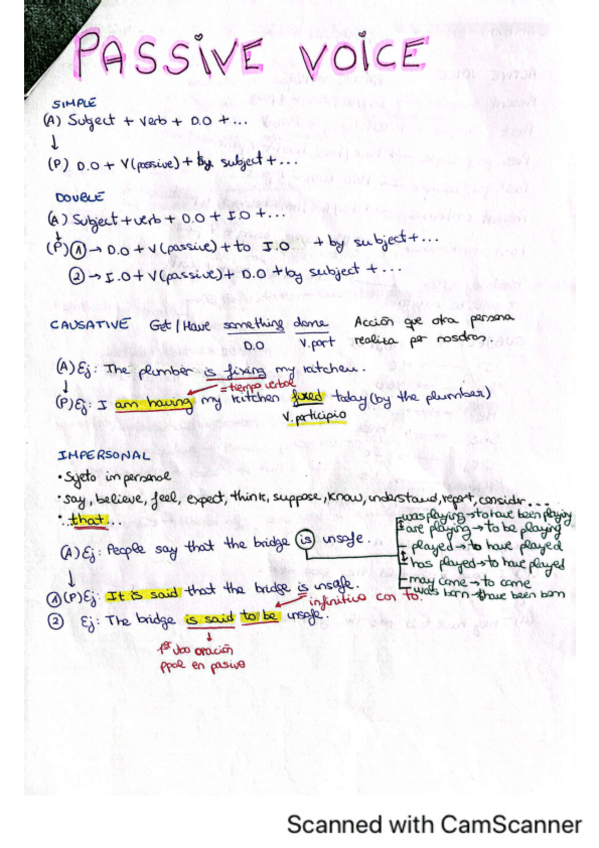 PASSIVE VOICE
SIMPLE
(A) Subject + Verb + D.O + ...
↓
(P) D.O + V(passive) + by subject + ...
DOUBLE
(A) Subject + verb + D.O + I.O + ...
↓
(P) ① → D.O + V(passive) + to I.O + by subject + ...
② → I.O + V(passive) + D.O + by subject + ...
CAUSATIVE Get / Have something done Acción que otra persona
D.O V.part realiza por nosotros.
(A) Ej: The plumber is fixing my kitchen.
↓ = tiempo verbal
(P) Ej: I am having my kitchen fixed today (by the plumber)
V. participio
IMPERSONAL
• Sujeto impersonal
• say, believe, feel, expect, think, suppose, know, understand, report, consider ...
• ..that...
was playing → to have been playing
are playing → to be playing
played → to have played
has played → to have played
may come → to come
was born → have been born
(A) Ej: People say that the bridge is unsafe.
↓
① (P) Ej: It is said that the bridge is unsafe.
infinitivo con To.
② Ej: The bridge is said to be unsafe.
↓
1º vbo oración
ppal en pasiva
Scanned with CamScanner